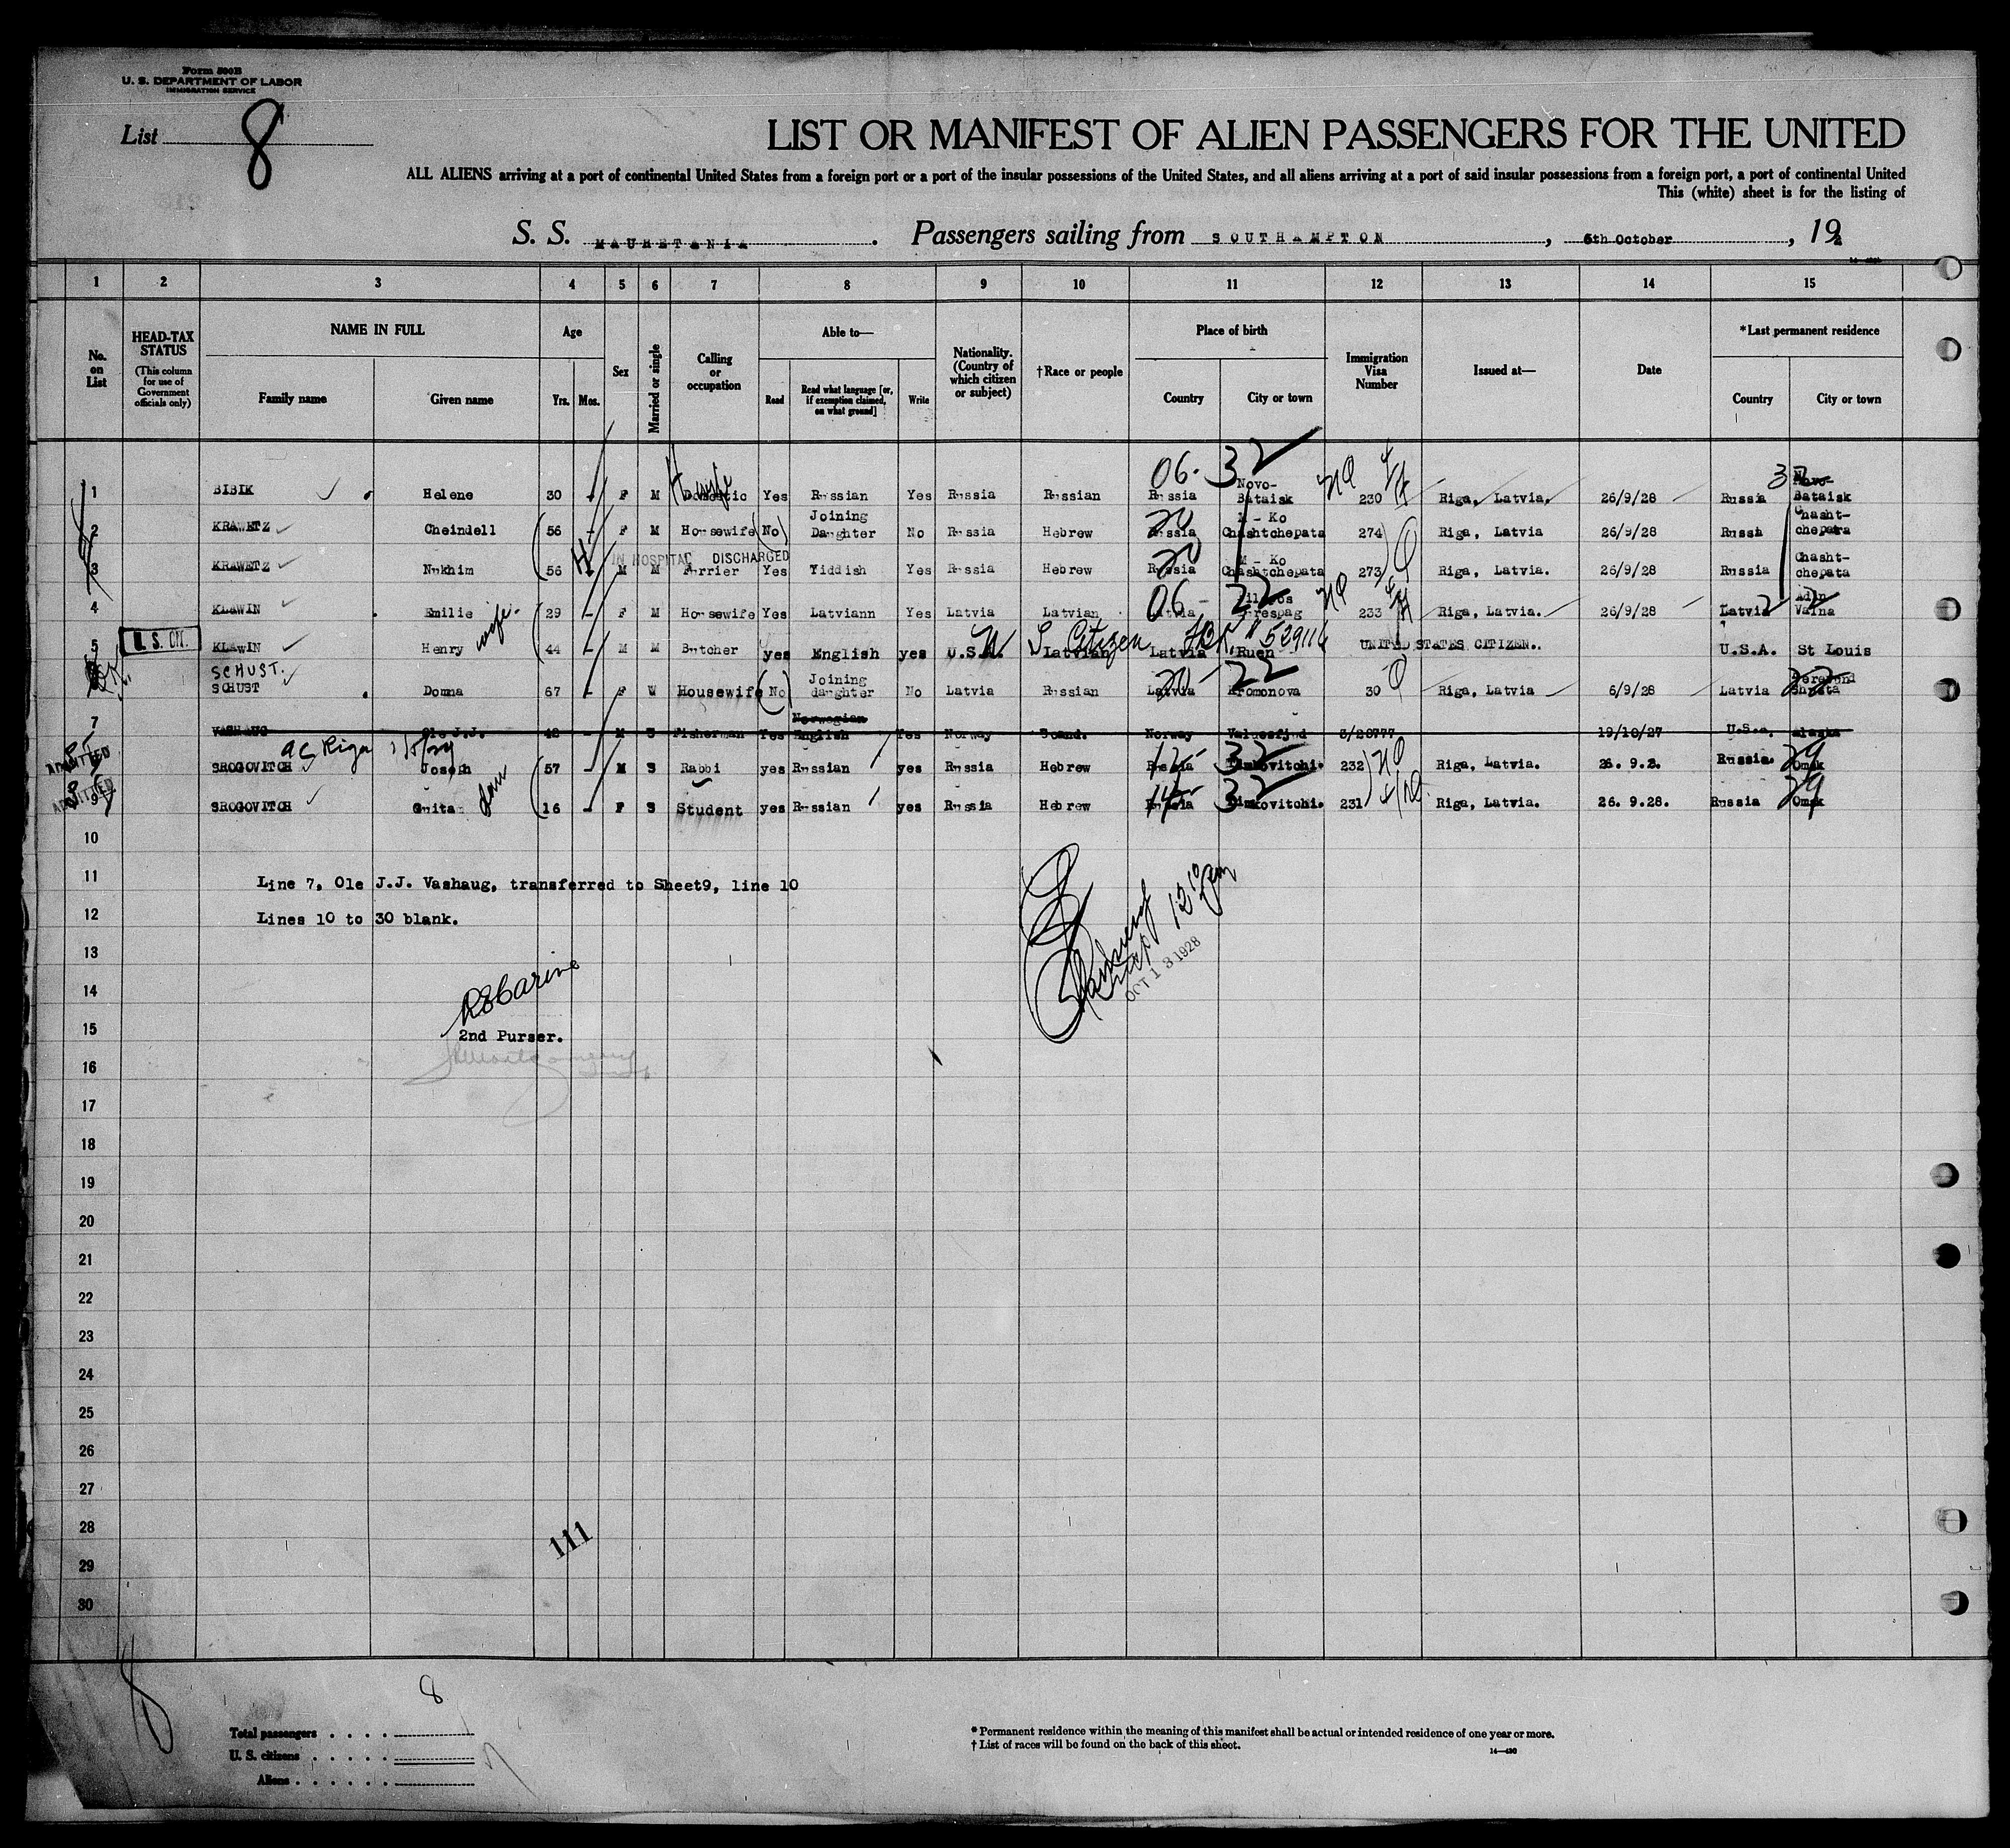 Form 500B
U. S. DEPARTMENT OF LABOR
IMMIGRATION SERVICE
List 8
LIST OR MANIFEST OF ALIEN PASSENGERS FOR THE UNITED
ALL ALIENS arriving at a port of continental United States from a foreign port or a port of the insular possessions of the United States, and all aliens arriving at a port of said insular possessions from a foreign port, a port of continental United
This (white) sheet is for the listing of
S. S. MAURETANIA. Passengers sailing from SOUTHAMPTON, 6th October, 19
1 2 3 4 5 6 7 8 9 10 11 12 13 14 15
No. on List
HEAD-TAX STATUS
(This column for use of Government officials only)
NAME IN FULL
Family name Given name
Age
Yrs. Mos.
Sex
Married or single
Calling or occupation
Able to—
Read
Read what language [or, if exemption claimed, on what ground]
Write
Nationality. (Country of which citizen or subject)
†Race or people
Place of birth
Country City or town
Immigration Visa Number
Issued at—
Date
*Last permanent residence
Country City or town
06- 32
1 BIBIK Helene 30 - F M Domestic Yes Russian Yes Russia Russian Russia Novo-Bataisk 230 Riga, Latvia. 26/9/28 Russia Novo-Bataisk
2 KRAWETZ Cheindell 56 - F M Housewife (No) Joining Daughter No Russia Hebrew Russia M - Ko Chashtchepata 274 Riga, Latvia 26/9/28 Russia Chasht-chepata
IN HOSPITAL DISCHARGED
3 KRAWETZ Nukhim 56 M M Furrier Yes Yiddish Yes Russia Hebrew Russia M - Ko Chashtchepata 273 Riga, Latvia. 26/9/28 Russia Chasht-chepata
4 KLAWIN Emilie wife. 29 - F M Housewife Yes Latviann Yes Latvia Latvian Latvia 06- 22 233 Riga, Latvia. 26/9/28 Latvia
5 U. S. CIT. KLAWIN Henry 44 - M M Butcher yes English yes U.S.A. Latvian Latvia Ruen UNITED STATES CITIZEN. U.S.A. St Louis
U S Citizen
SCHUST.
SCHUST Domna 67 - F W Housewife (No) Joining daughter No Latvia Russian Latvia Kromonova 30 Riga, Latvia 6/9/28 Latvia
7 VASHAUG Ole J.J. 48 - M S Fisherman Yes Norwegian English Yes Norway Scand. Norway 3/28777 19/10/27 U.S.A. Alaska
ADMITTED SROGOVITCH Joseph 57 - M S Rabbi yes Russian yes Russia Hebrew Russia 32 232 Riga, Latvia. 26. 9.2. Russia. Omsk
ADMITTED 9 SROGOVITCH Guita 16 - F S Student yes Russian yes Russia Hebrew Russia 32 231 Riga, Latvia. 26. 9.28. Russia Omsk
10
11 Line 7, Ole J.J. Vashaug, transferred to Sheet9, line 10
12 Lines 10 to 30 blank.
13
OCT 13 1928
14
15 2nd Purser.
16
17
18
19
20
21
22
23
24
25
26
27
28
111
29
30
8
Total passengers
U. S. citizens
Aliens
* Permanent residence within the meaning of this manifest shall be actual or intended residence of one year or more.
† List of races will be found on the back of this sheet.